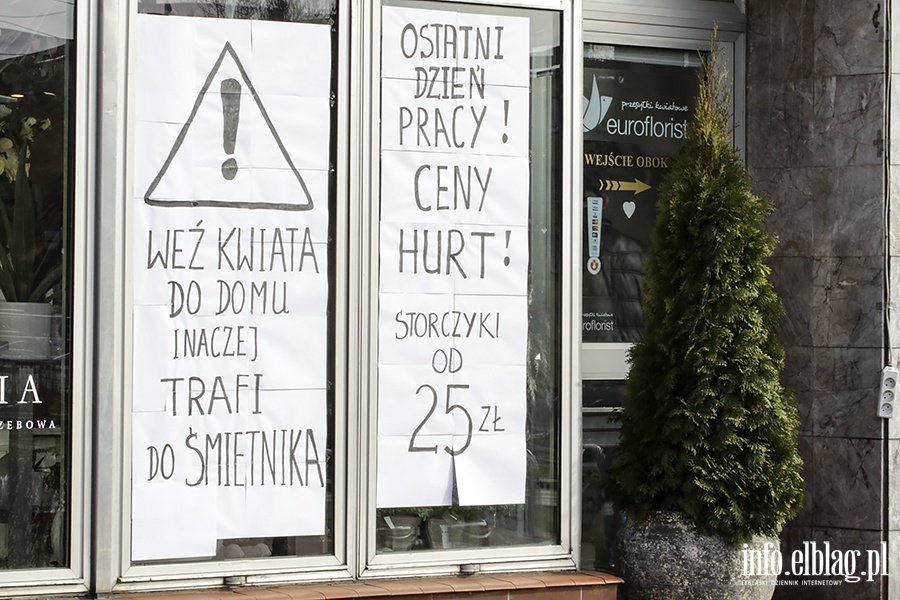 !
WEŹ KWIATA
DO DOMU
INACZEJ
TRAFI
DO ŚMIETNIKA
OSTATNI
DZIEŃ
PRACY!
CENY
HURT!
STORCZYKI
OD
25 ZŁ
przesyłki kwiatowe
euroflorist
WEJŚCIE OBOK
euroflorist
IA
ZEBOWA
info.elblag.pl
ELBLĄSKI DZIENNIK INTERNETOWY